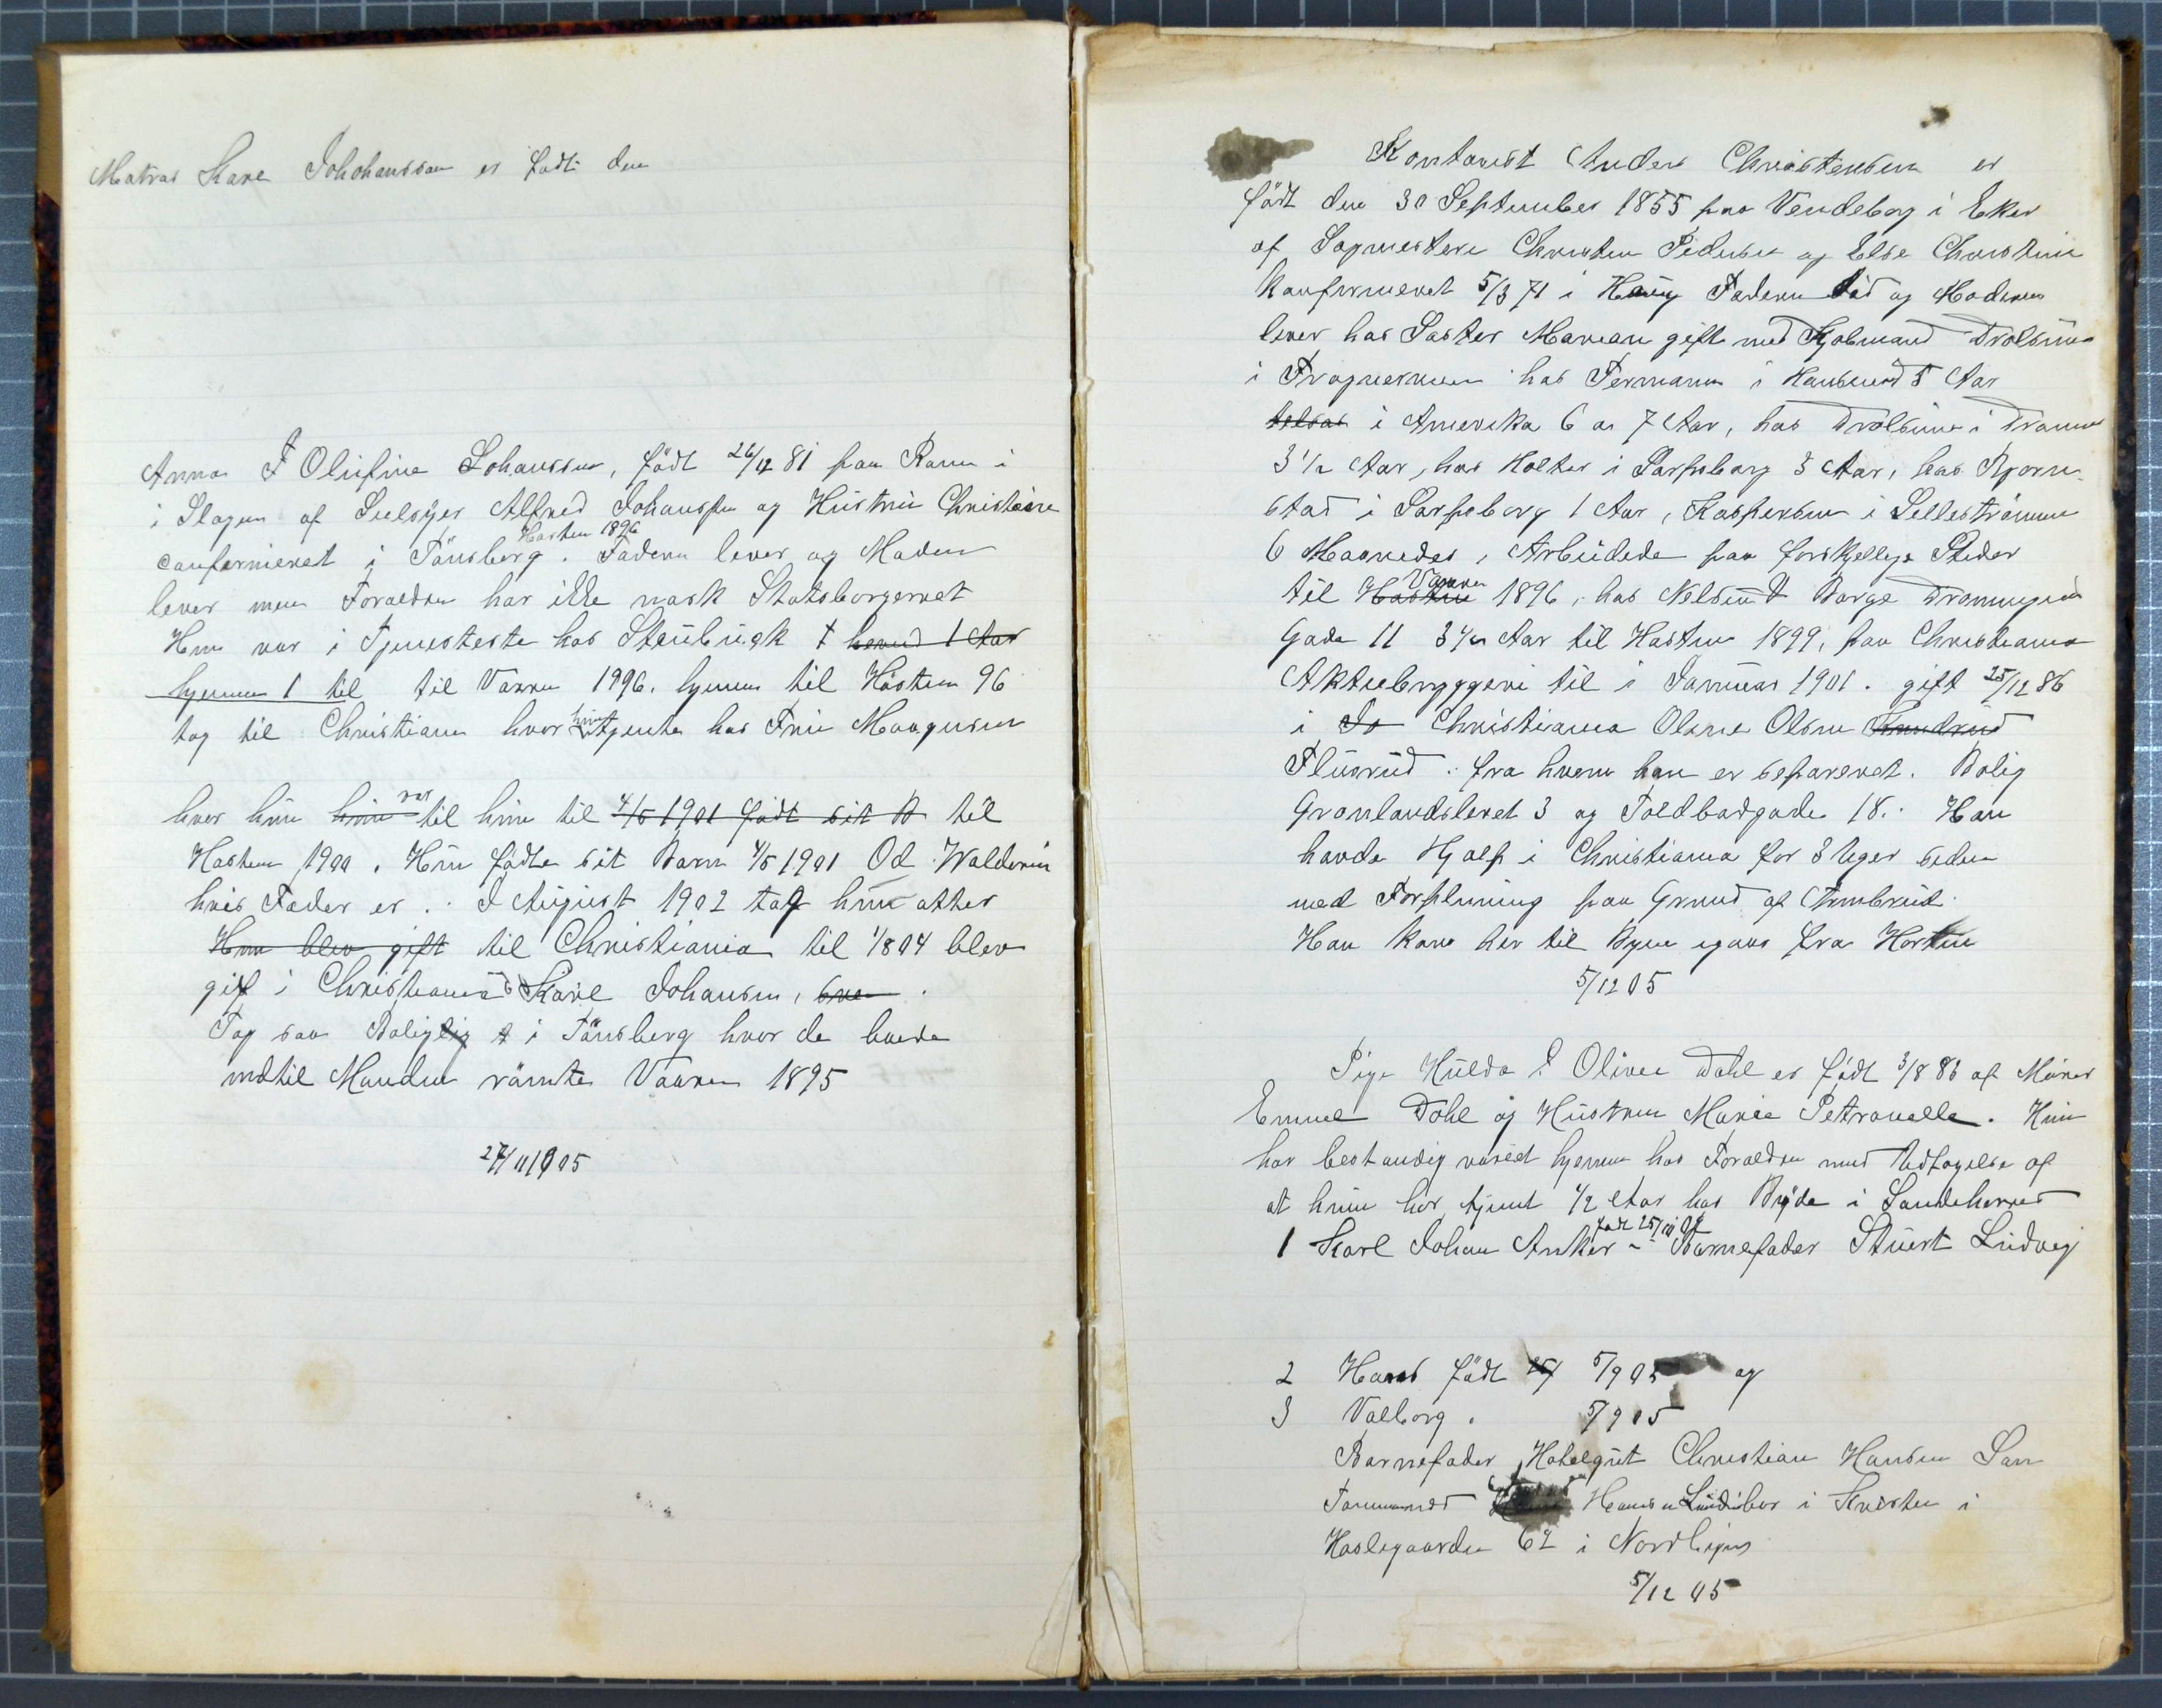 Matros Karl Johohansson er född den
Anna F Olufine Johansson, född 26/12 81 paa Ramn i
i Slagen af Seelsyer Alfred Johansson og Hustru Christine
Høsten 1896
confirmeret i Tönsberg. Faderen lever og Moderen
lever men Foraeldren har ikke nask Statsborgerret
Hun var i Tjenesteste hos Steubugk t herved 1 Aar
hjemme 1 til til Vaaren 1996. hjemme til Hösten 96
tog til Christiania hvor hun tjente hos Fru Maagnusen
hvor hun hun var til hun til 4/5 1901 födt sit B til
Høsten 1900. Hun födte sit Barn 4/5 1901 Od Waldemin
hvis Fader er . I August 1902 tog hun atter
Hun blev gift til Christiania til 1/8 04 blev
gift i Christiania Karl Johansen, sven.
Tog saa Boliglig t i Tönsberg hvor de boede
indtil Manden römte Vaaren 1895
27/11 1905
Kontorist Anders Christensen er
födt den 30 September 1855 paa Vendeborg i Eker
af Sagmester Christen Pedersen og Else Christine
Konfirmeret 5/3 71 i Haug Faderen död og Moderen
lever hos Søster Maren gift med Kjøbmand Drolsum
i Frognermen hos Fermann i Hausmed 5 Aar
i Amerika 6 a 7 Aar, hos Drolsum i Dramm
3 1/2 Aar, hos Holter i Sarpsborg 3 Aar, hos Bjorn-
stad i Sarpsborg 1 Aar, Kaspersen i Lilleströmmen
6 Maaneder, Arbeidede paa forskjellige Steder
til Høsten Vaaren 1896, hos Nelsen & Borge Dronningens
Gade 11 3 1/2 Aar til Høsten 1899, paa Christiania
Aktiebryggeri til i Januar 1901. gift 25/12 86
i Christiania Oline Olsen
Flusrud. fra hvem han er separeret. Bolig
Grønlandsleret 3 og Toldbodgade 18. Han
havde Hjælp i Christiania for 3 Uger siden
med Forpleining paa Grund af Armbrud.
Han kom her til Byen igaar fra Horten
5/12 05
Pige Hulda E Olivee Dahl er födt 3/8 86 af Murer
Emmel Dahl og Hustru Marie Petronelle. Hun
har bestandig været hjemme hos Foraeldre med Udtagelse af
at hun har tjent 1/2 Aar hos Bryde i Sandeherred
1 Karl Johan Anker - födt 25/10 02 Barnefader Stuert Ludvig
2 Hans födt 5/9 05 og
3 Valborg. 5/9 05
Barnefader Hotelgut Christian Hansen Søn
Tømmermand Hans Lindibor i Kvisten i
Haslegaarden 62 i Nordbyen
5/12 05